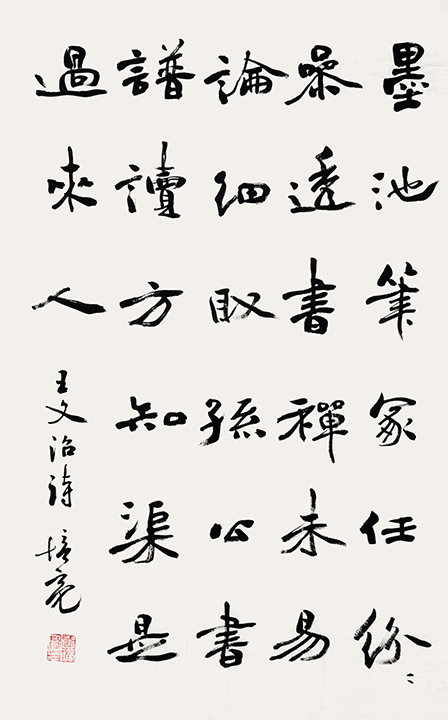 墨池筆冢任紛〻
參透書禪未易
論細取孫公書
譜讀方知渠是
過來人
王文治詩 培亮